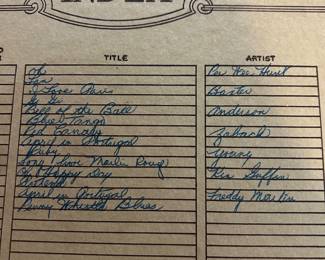 INDEX
TITLE ARTIST
Oh Pee Wee Hunt
San
I Love Paris Baxter
Gi Gi
Belle of the Ball Anderson
Blue Tango
Red Canary Zabach
April in Portugal
Ruby Young
Song from Moulin Rouge
Oh Happy Day
April in Portugal Freddy Martin
Penny Whistle Blues